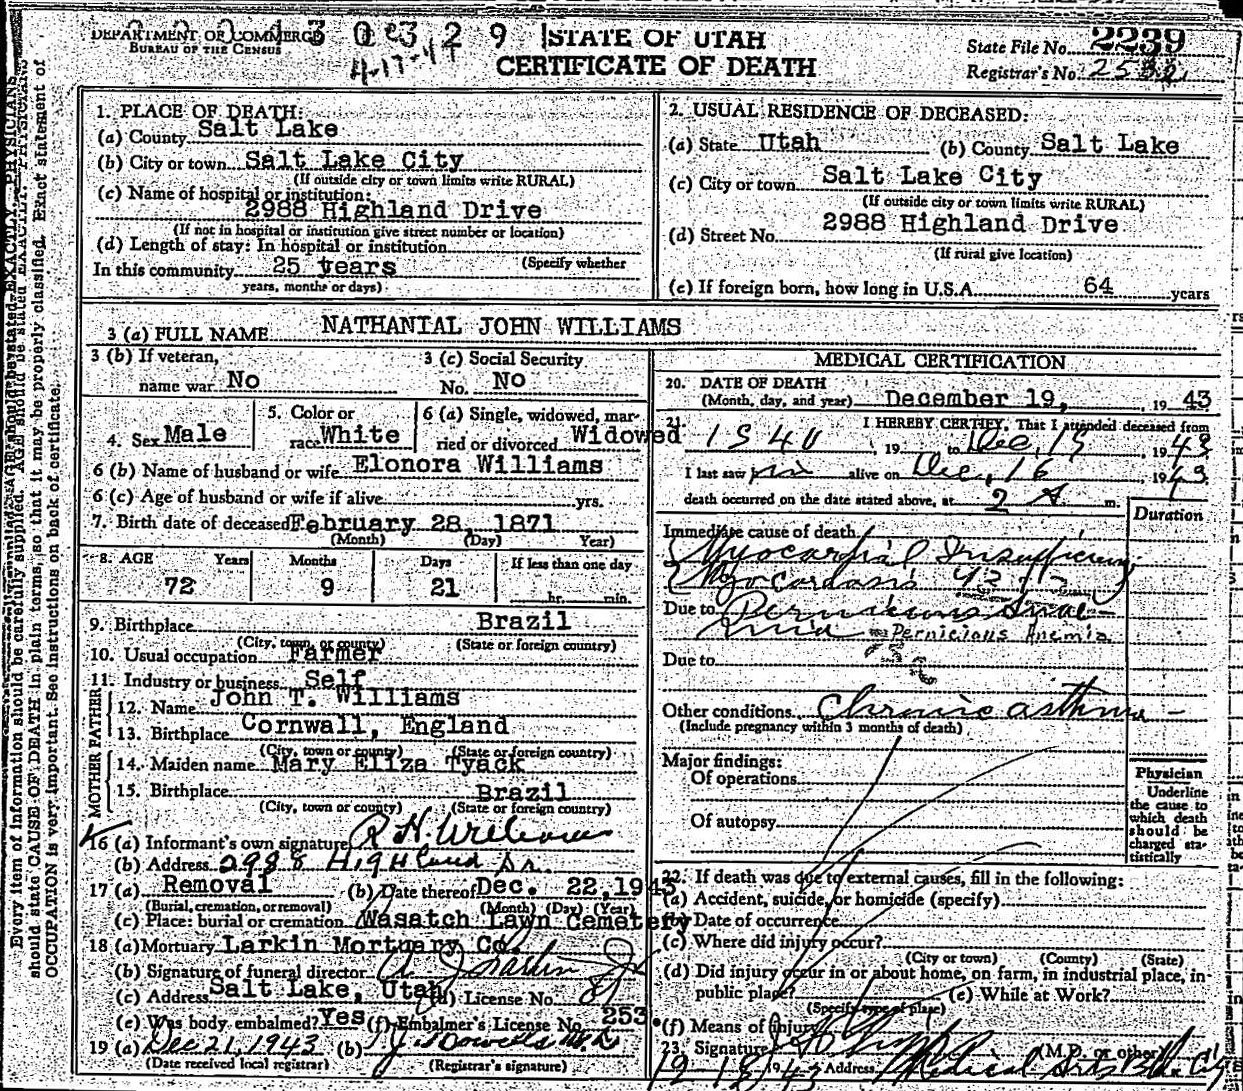 DEPARTMENT OF COMMERCE
BUREAU OF THE CENSUS
4-17-44
STATE OF UTAH
CERTIFICATE OF DEATH
State File No. 2239
Registrar's No.
1. PLACE OF DEATH:
(a) County Salt Lake
(b) City or town Salt Lake City
(If outside city or town limits write RURAL)
(c) Name of hospital or institution:
2988 Highland Drive
(If not in hospital or institution give street number or location)
(d) Length of stay: In hospital or institution
(Specify whether
In this community 25 years
years, months or days)
2. USUAL RESIDENCE OF DECEASED:
(a) State Utah (b) County Salt Lake
(c) City or town Salt Lake City
(If outside city or town limits write RURAL)
2988 Highland Drive
(d) Street No.
(If rural give location)
(e) If foreign born, how long in U.S.A. 64 years
3 (a) FULL NAME NATHANIAL JOHN WILLIAMS
3 (b) If veteran,
name war No
3 (c) Social Security
No. No
4. Sex Male
5. Color or
race White
6 (a) Single, widowed, mar-
ried or divorced Widowed
6 (b) Name of husband or wife Elonora Williams
6 (c) Age of husband or wife if alive yrs.
7. Birth date of deceased February 28, 1871
(Month) (Day) Year)
8. AGE Years Months Days If less than one day
72 9 21 hr. min.
9. Birthplace Brazil
(City, town, or county) (State or foreign country)
10. Usual occupation Farmer
11. Industry or business Self
FATHER
12. Name John T. Williams
13. Birthplace Cornwall, England
(City, town or county) (State or foreign country)
MOTHER
14. Maiden name Mary Eliza Tyack
15. Birthplace Brazil
(City, town or county) (State or foreign country)
16 (a) Informant's own signature R H. Williams
(b) Address 2988 Highland Dr.
17 (a) Removal (b) Date thereof Dec. 22, 1943
(Burial, cremation, or removal) (Month) (Day) (Year)
(c) Place: burial or cremation Wasatch Lawn Cemetery
18 (a) Mortuary Larkin Mortuary Co.
(b) Signature of funeral director A J Larkin Jr
(c) Address Salt Lake, Utah (d) License No.
(e) Was body embalmed? Yes (f) Embalmer's License No. 253
19 (a) Dec 21, 1943 (b)
(Date received local registrar) (Registrar's signature)
MEDICAL CERTIFICATION
20. DATE OF DEATH
(Month, day, and year) December 19, 19 43
21. I HEREBY CERTIFY, That I attended deceased from
1940, 19 to Dec, 19, 19 43
I last saw him alive on Dec, 16, 19 43
death occurred on the date stated above, at 2 A m.
Duration
Immediate cause of death
Myocardial Insufficiency
Myocardosis
Due to Pernicious Anae-
mia Pernicious Anemia
Due to
Other conditions Chronic asthma -
(Include pregnancy within 3 months of death)
Major findings:
Of operations
Of autopsy
Physician
Underline
the cause to
which death
should be
charged sta-
tistically
22. If death was due to external causes, fill in the following:
(a) Accident, suicide, or homicide (specify)
(b) Date of occurrence
(c) Where did injury occur?
(City or town) (County) (State)
(d) Did injury occur in or about home, on farm, in industrial place, in
public place? (e) While at Work?
(Specify type of place)
(f) Means of injury
23. Signature (M.D. or other)
Address Medical Arts Bldg. City
Every item of information should be carefully supplied. AGE should be stated EXACTLY. PHYSICIANS
should state CAUSE OF DEATH in plain terms, so that it may be properly classified. Exact statement of
OCCUPATION is very important. See instructions on back of certificate.